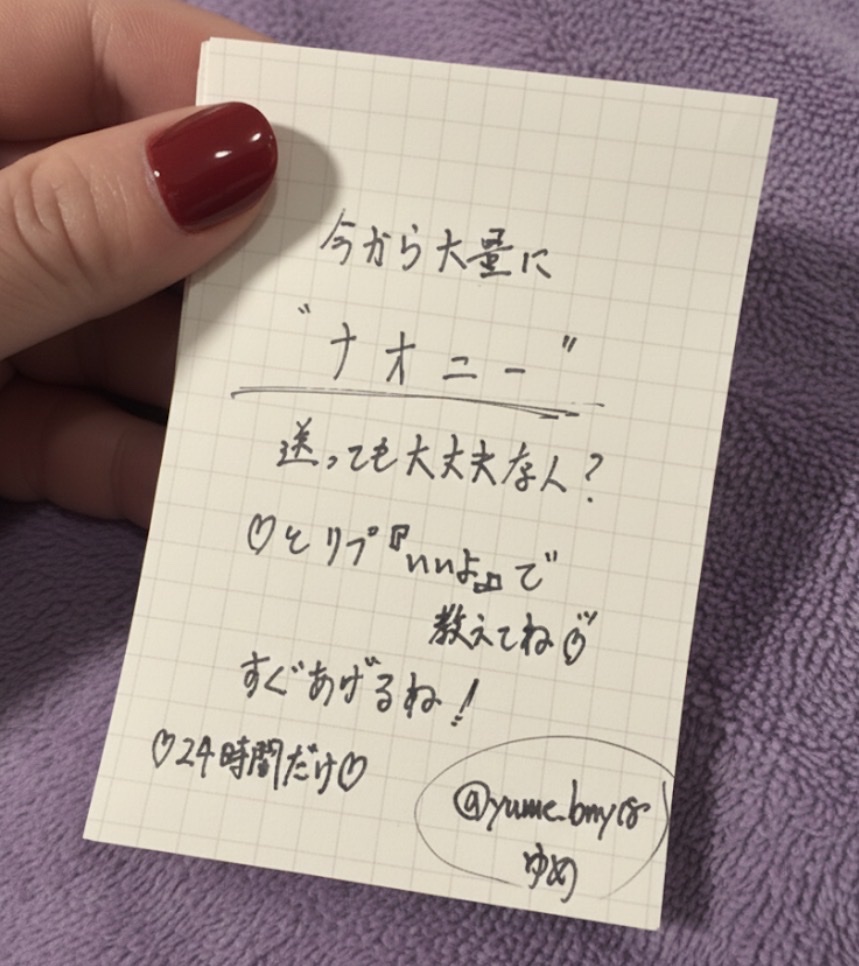 今から大量に
“ナオニー”
送っても大丈夫な人?
♡とリプ『いいよ』で
教えてね♡
すぐあげるね!
♡24時間だけ♡
@yume_bmy18
ゆめ